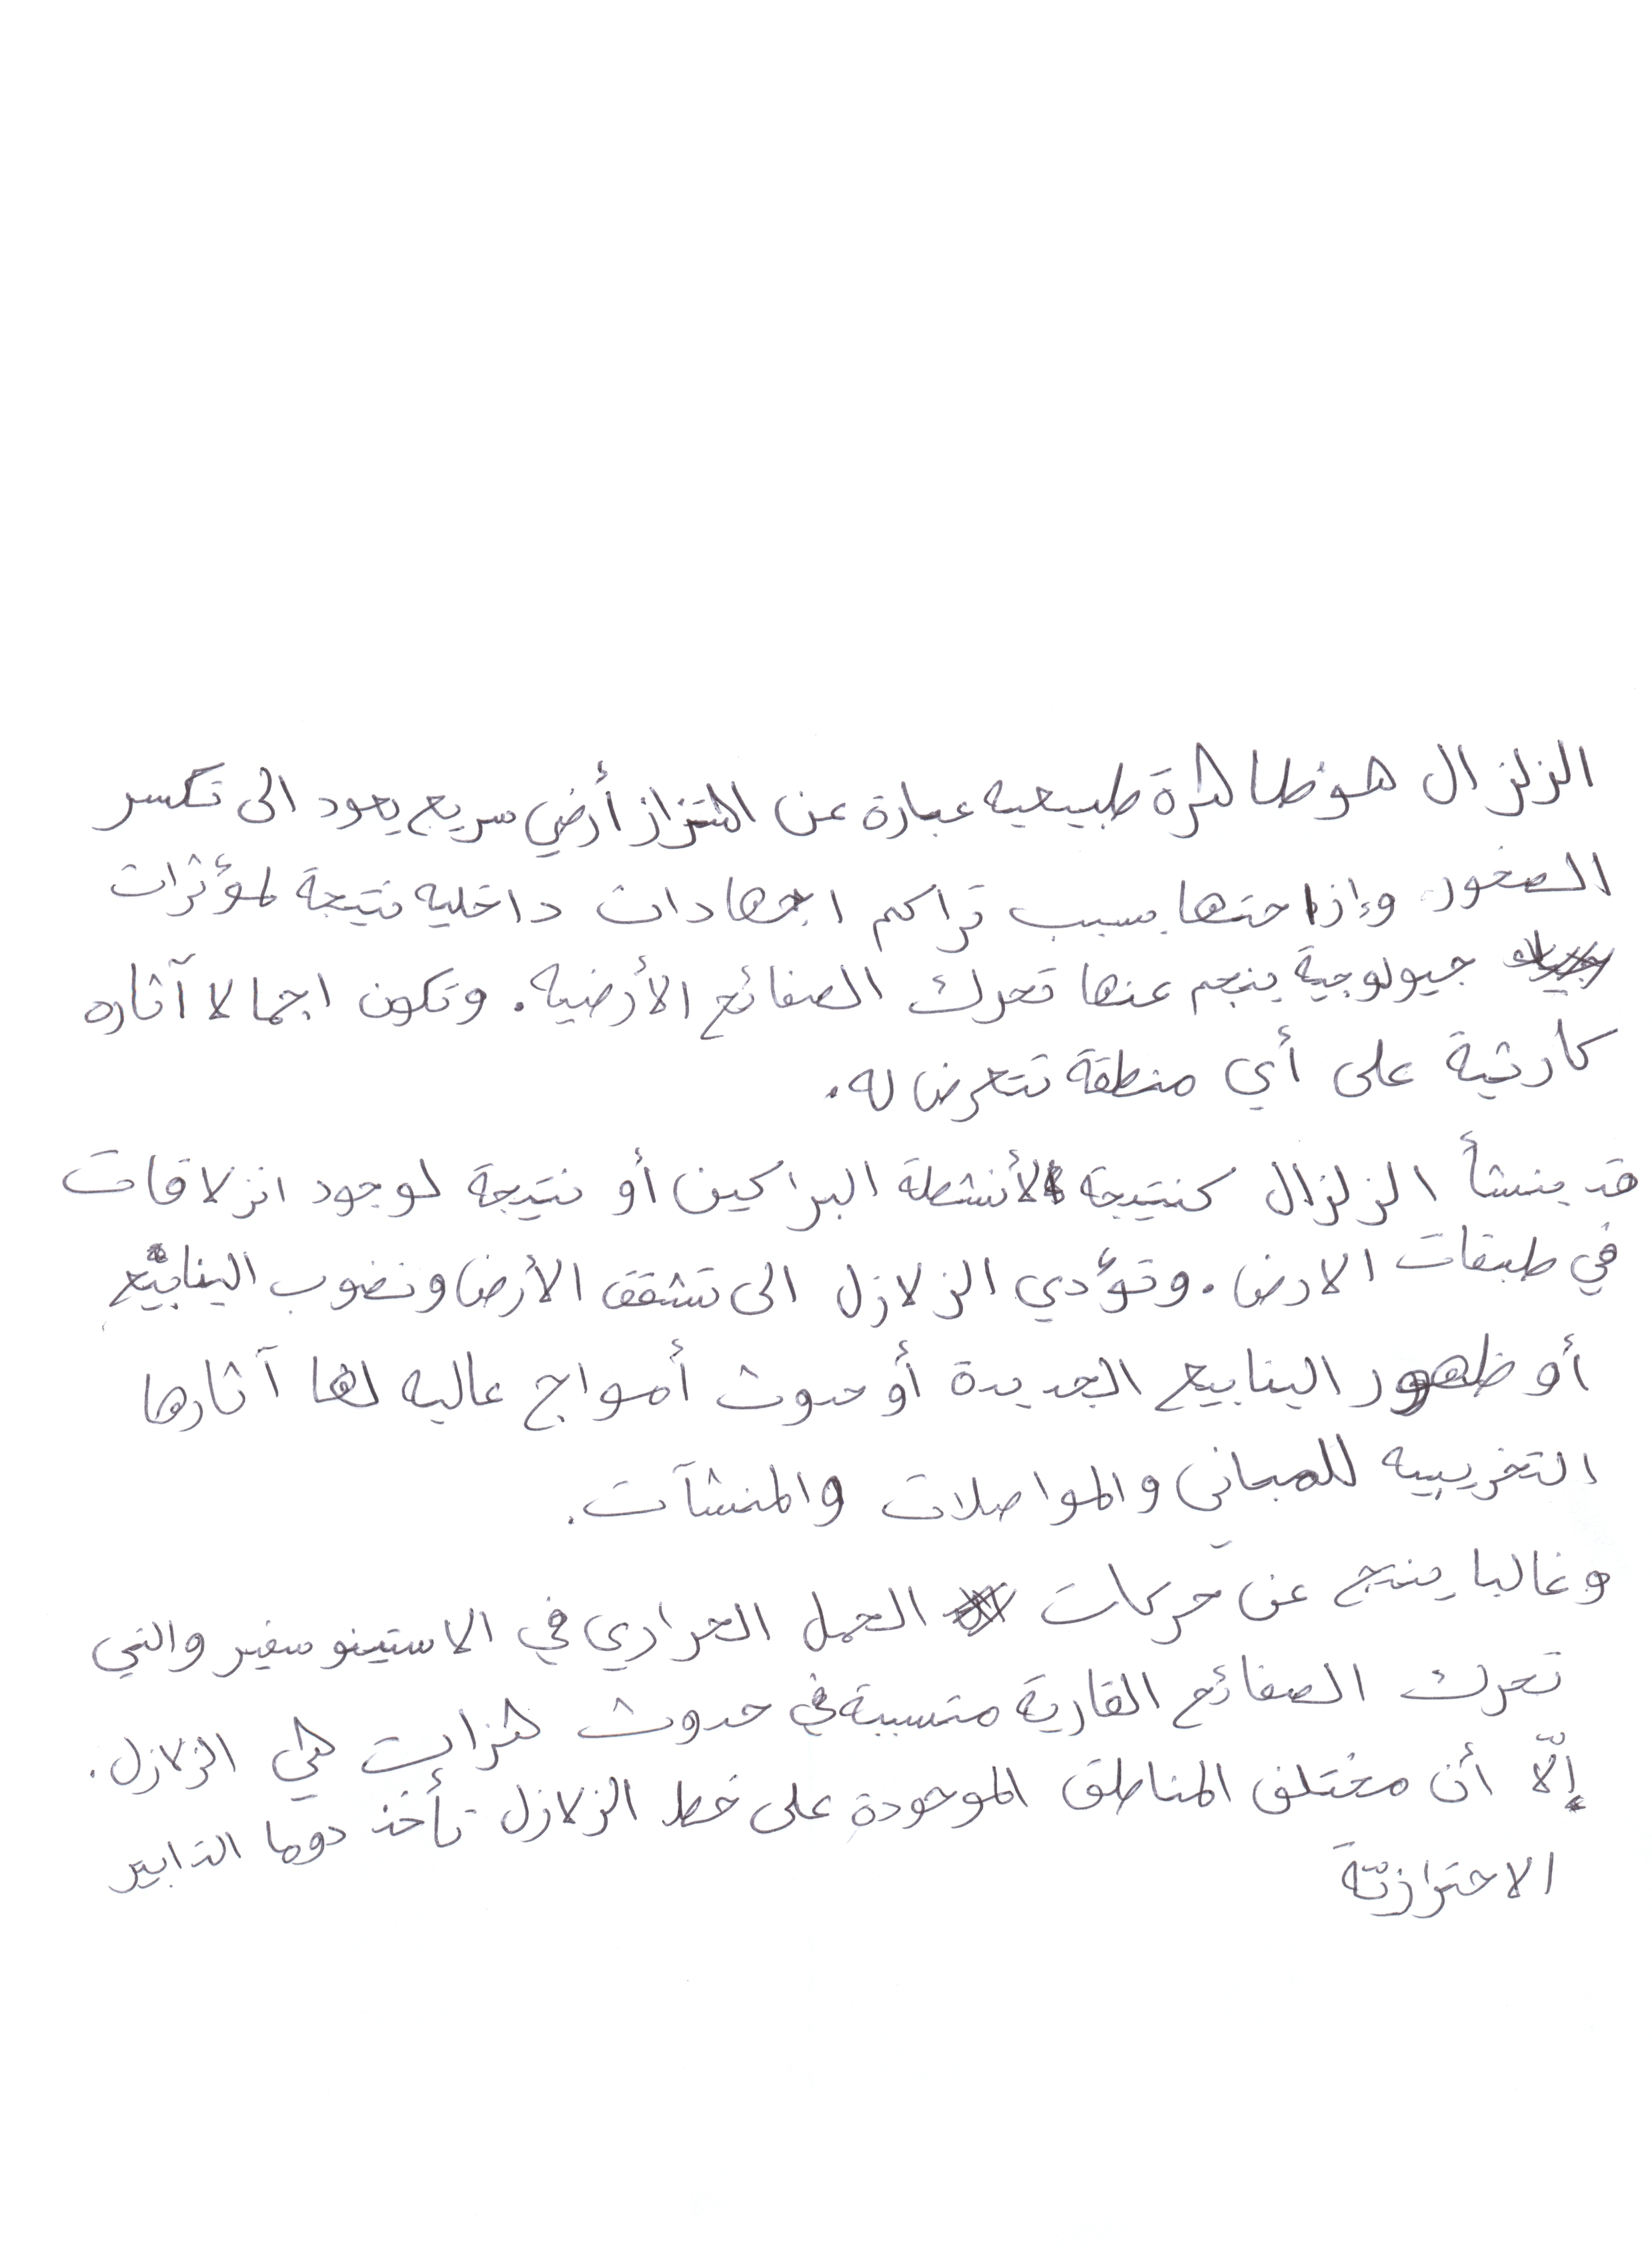 الزلزال هو ظاهرة طبيعيه عبارة عن اهتزاز أرضي سريع يعود الى تكسر
الصخور وإزاحتها بسبب تراكم اجهادات داخليه نتيجة لمؤثرات
جيولوجية ينجم عنها تحرك الصفائح الأرضيه. وتكون اجمالا آثاره
كارثية على أي منطقة تتعرض له.
قد ينشأ الزلزال كنتيجة لأنشطة البراكين أو نتيجة لوجود انزلاقات
في طبقات الارض. وتؤدي الزلازل الى تشقق الأرض ونضوب الينابيع
أو ظهور الينابيع الجديدة أو حدوث أمواج عاليه لها آثارها
التخريبيه للمباني والمواصلات والمنشآت.
وغالبا ينتج عن حركات الحمل الحراري في الاستينوسفير والتي
تحرك الصفائح القارية متسببة في حدوث هزات هي الزلازل.
إلّا أن مختلف المناطق الموجودة على خط الزلازل تأخذ دوما التدابير
الاحترازيّة